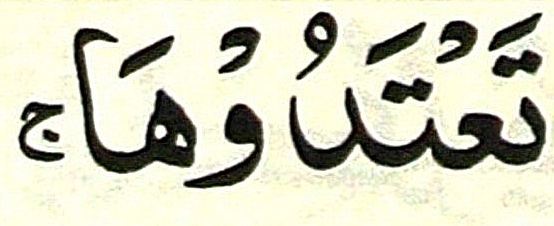 تَعْتَدُوْهَا ج